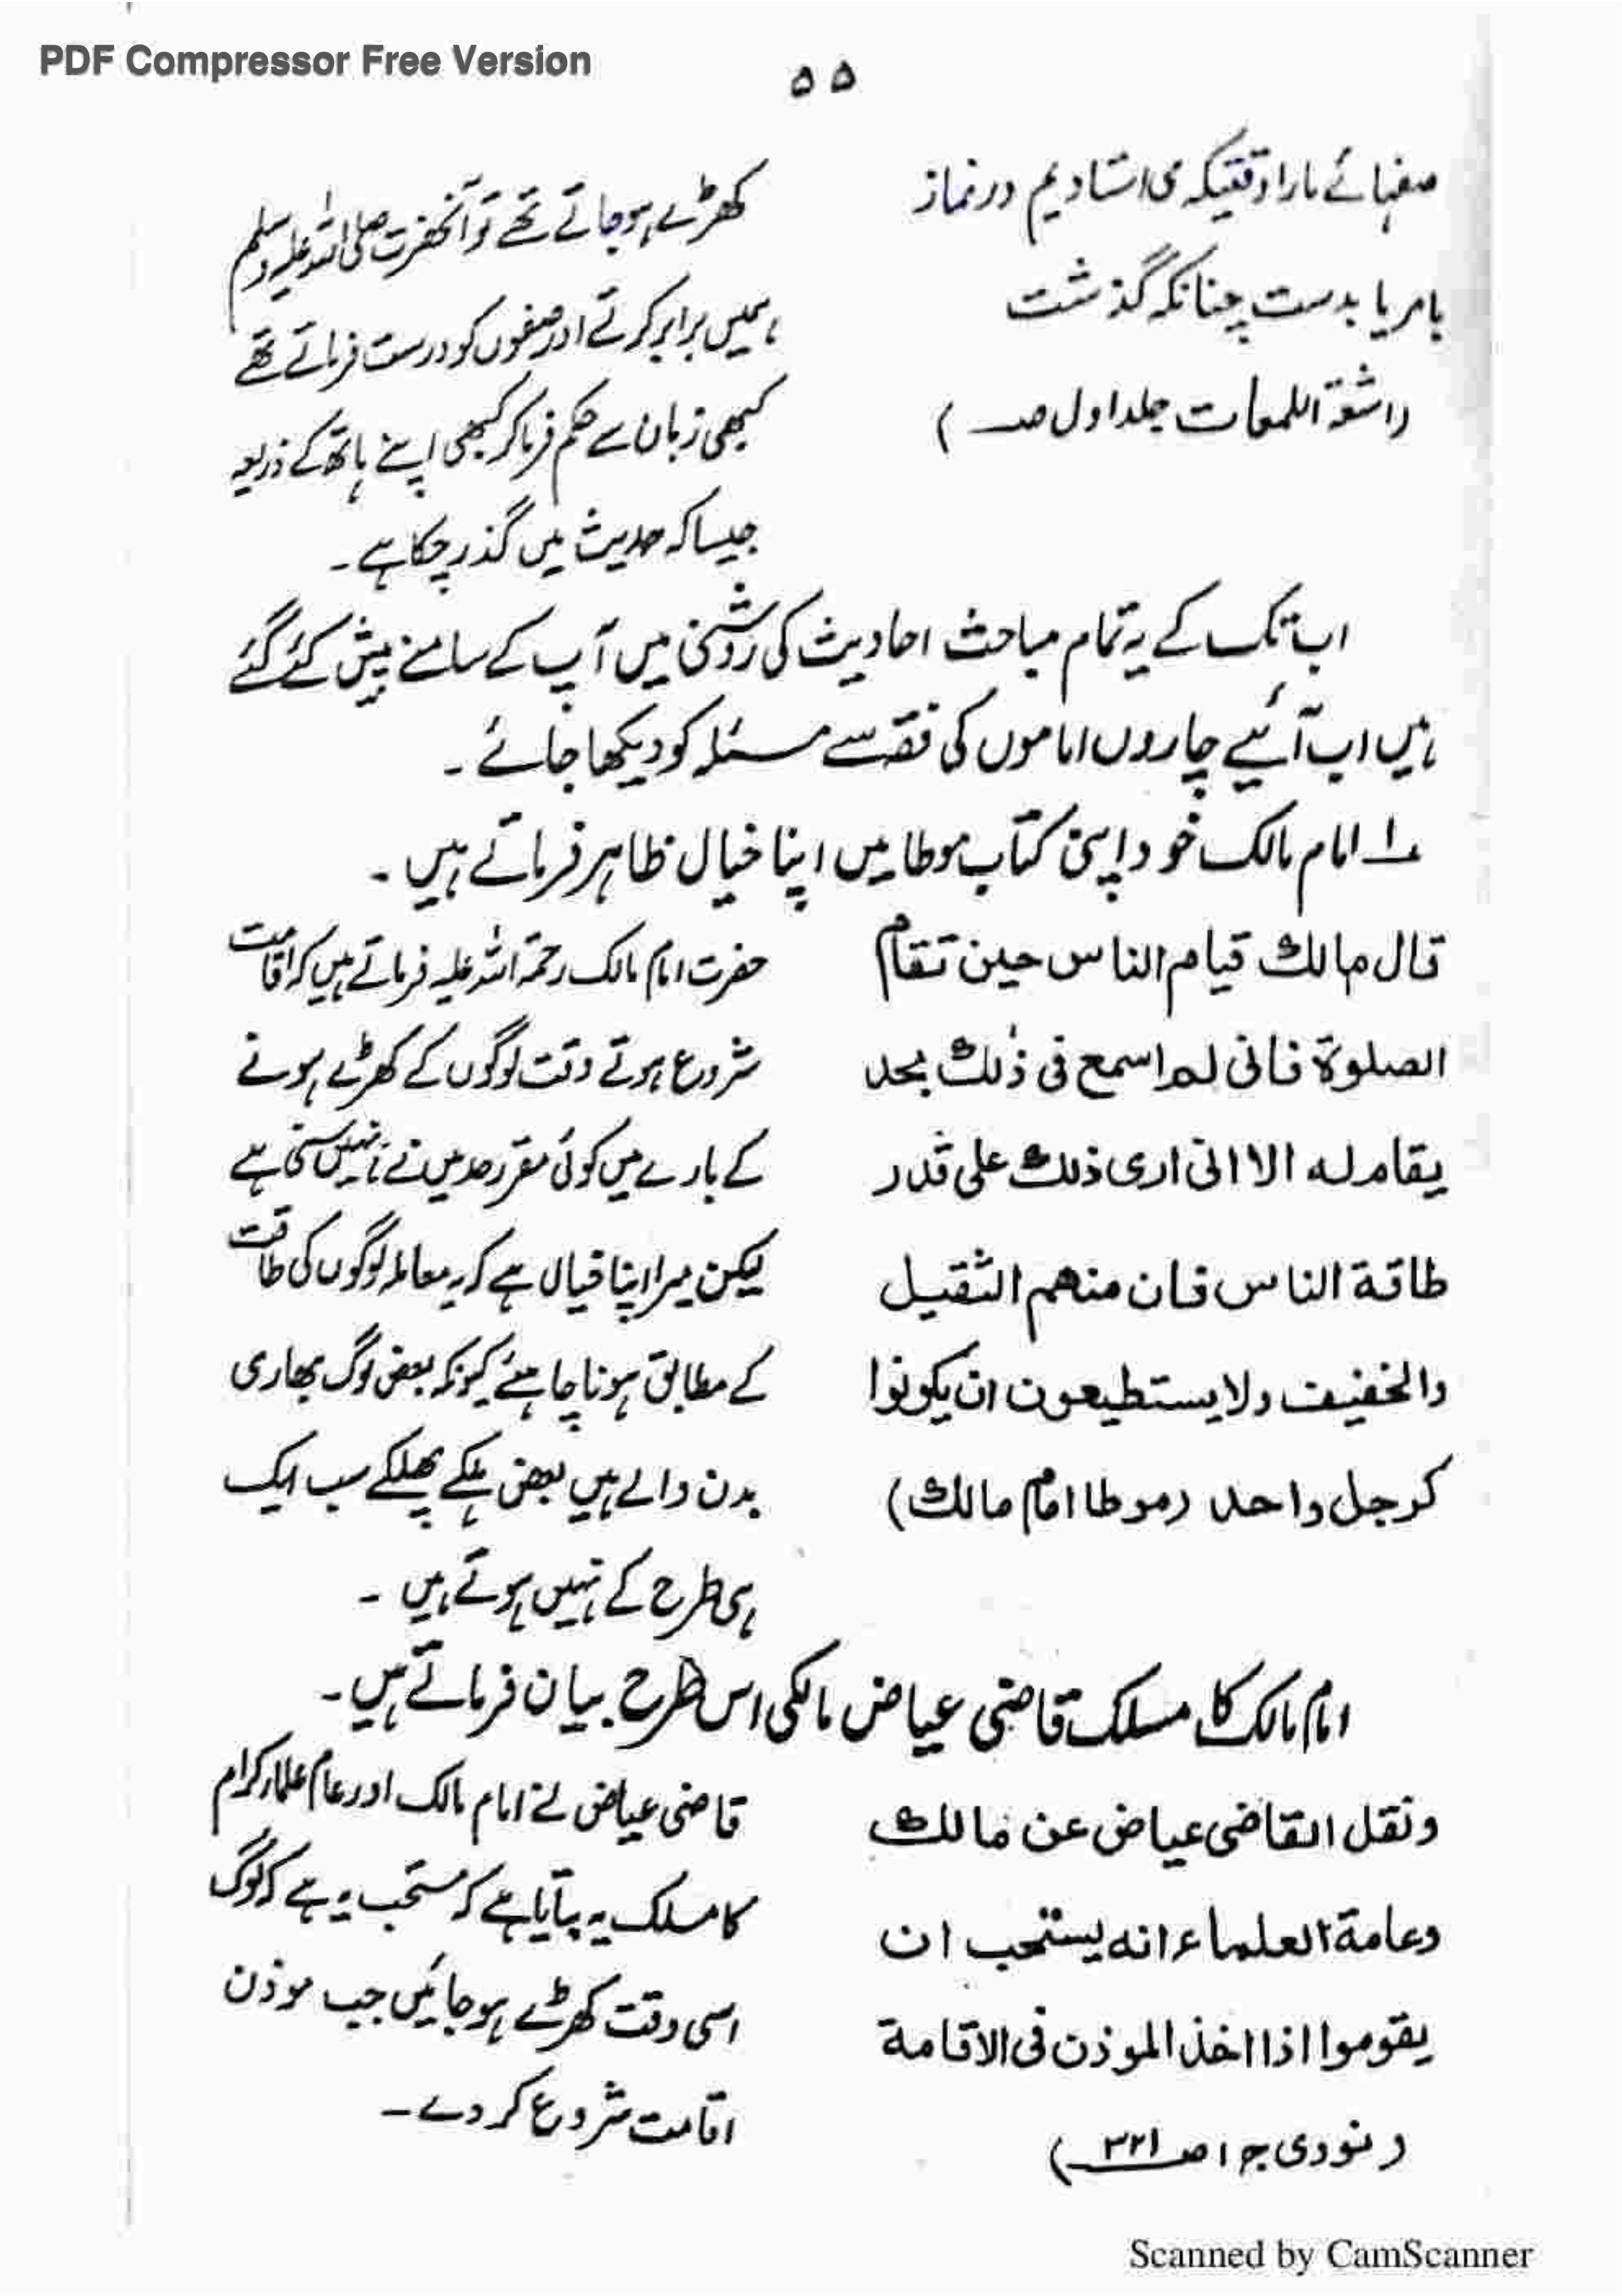 PDF Compressor Free Version
۵۵
صفہائے مارا وقتیکہ می استادیم در نماز
بامر یا بدست چنانکہ گذشت
(اشعۃ اللمعات جلد اول صـ )
کھڑے ہو جاتے تھے تو آنحضرت صلی اللہ علیہ وسلم
ہمیں برابر کرتے اور صفوں کو درست فرماتے تھے
کبھی زبان سے حکم فرما کر کبھی اپنے ہاتھ کے ذریعہ
جیسا کہ حدیث میں گذر چکا ہے ۔
اب تک کے یہ تمام مباحث احادیث کی روشنی میں آپ کے سامنے پیش کئے گئے
ہیں اب آئیے چاروں اماموں کی فقہ سے مسئلہ کو دیکھا جائے ۔
۱ امام مالک خود اپنی کتاب موطا میں اپنا خیال ظاہر فرماتے ہیں ۔
قال مالك قيام الناس حين تقام
الصلوة فانی لم اسمع فی ذٰلك بحد
یقام له الا انی اری ذلك علی قدر
طاقة الناس فان منهم الثقیل
والخفیف ولا یستطیعون ان یکونوا
کرجل واحد (موطا امام مالك)
حضرت امام مالک رحمۃ اللہ علیہ فرماتے ہیں کہ اقامت
شروع ہوتے وقت لوگوں کے کھڑے ہونے
کے بارے میں کوئی مقرر حد میں نے نہیں سنی ہے
لیکن میرا اپنا خیال ہے کہ یہ معاملہ لوگوں کی طاقت
کے مطابق ہونا چاہئے کیونکہ بعض لوگ بھاری
بدن والے ہیں بعض ہلکے پھلکے سب ایک
ہی طرح کے نہیں ہوتے ہیں ۔
امام مالک کا مسلک قاضی عیاض مالکی اس طرح بیان فرماتے ہیں ۔
ونقل القاضی عیاض عن مالك
وعامة العلماء انه یستحب ان
یقوموا اذا اخذ الموذن فی الاقامة
(نووی ج ۱ صـ ۲۲۱)
قاضی عیاض نے امام مالک اور عام علماء کرام
کا مسلک یہ بتایا ہے کہ مستحب یہ ہے کہ لوگ
اسی وقت کھڑے ہو جائیں جب موذن
اقامت شروع کر دے ۔
Scanned by CamScanner